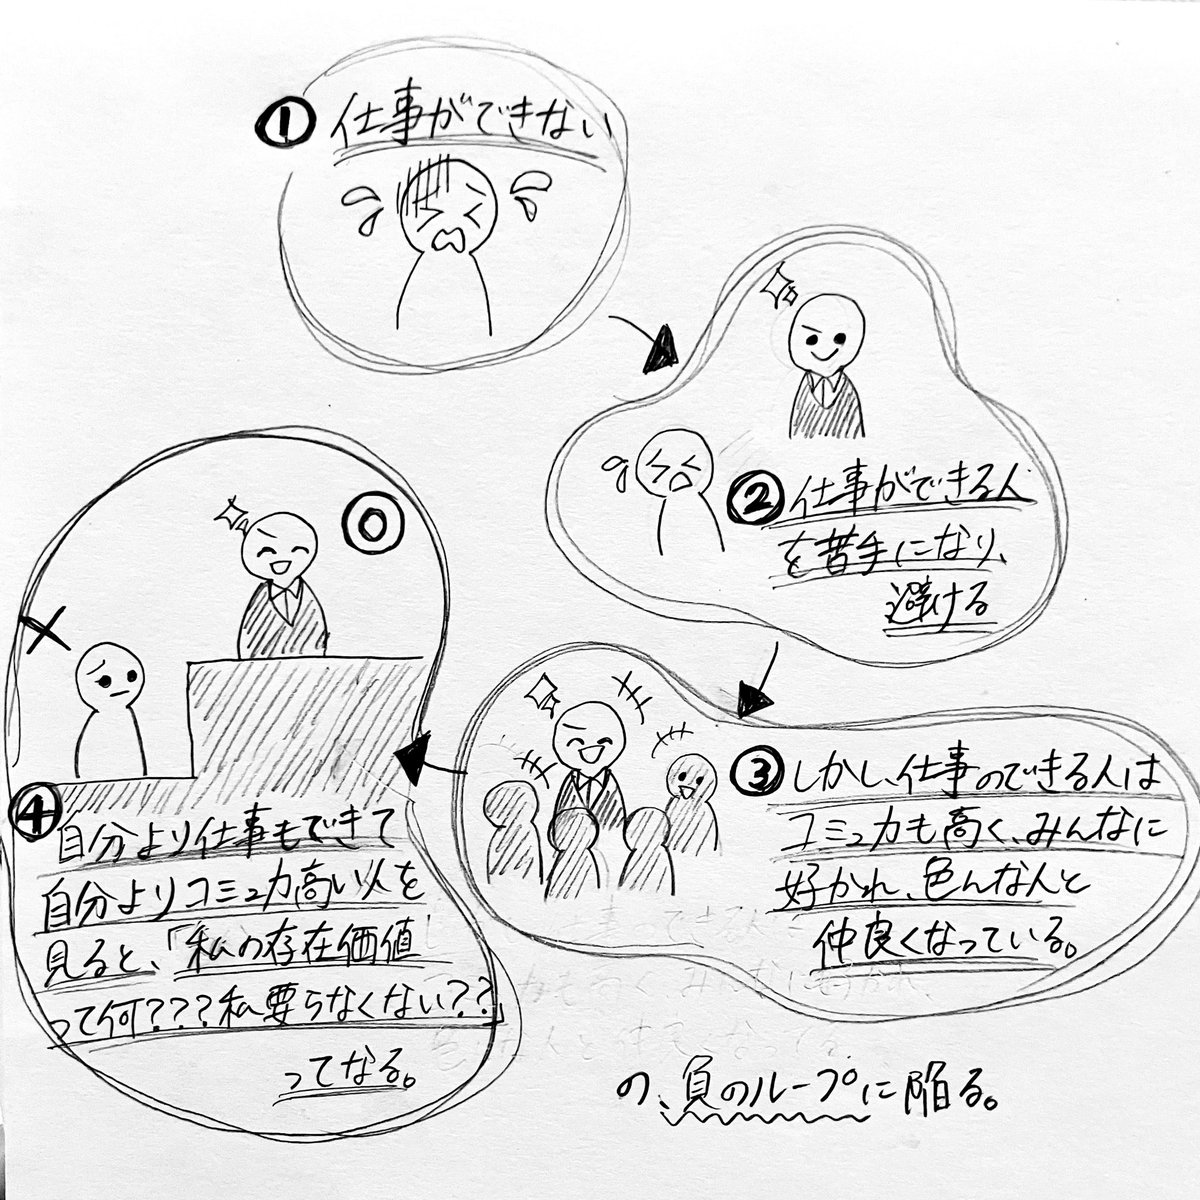 ① 仕事ができない
② 仕事ができる人
を苦手になり、
避ける
③ しかし、仕事のできる人は
コミュ力も高く、みんなに
好かれ、色んな人と
仲良くなっている。
④
自分より仕事もできて
自分よりコミュ力高い人を
見ると、「私の存在価値
って何???私要らなくない??」
ってなる。
の、負のループに陥る。